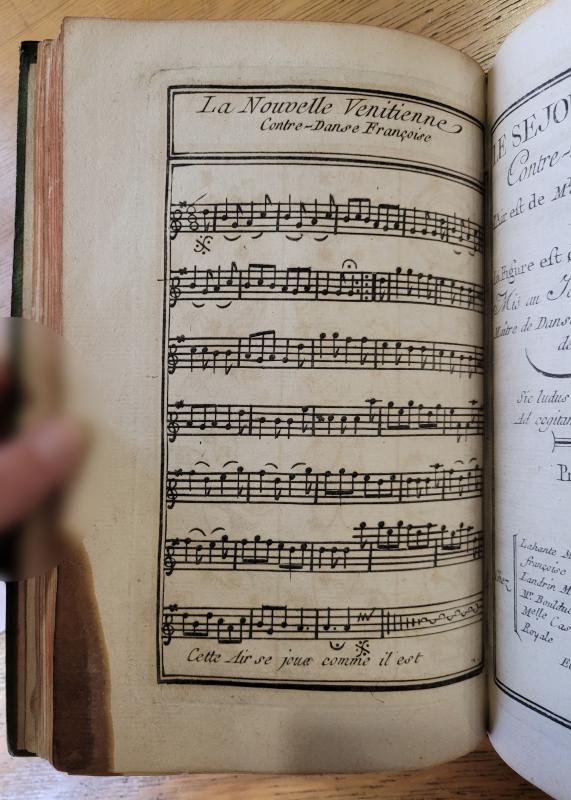 La Nouvelle Venitienne
Contre-Danse Françoise
Cette Air se joue comme il est
LE SEJOU
Contre-
L'Air est de Mr
La Figure est
Mis au Jo
Maitre de Danse
de
Sic ludus
Ad cogitan
Pr
Chez
Lahante M
françoise
Landrin M
Mr Bouldu
Melle Cas
Royale